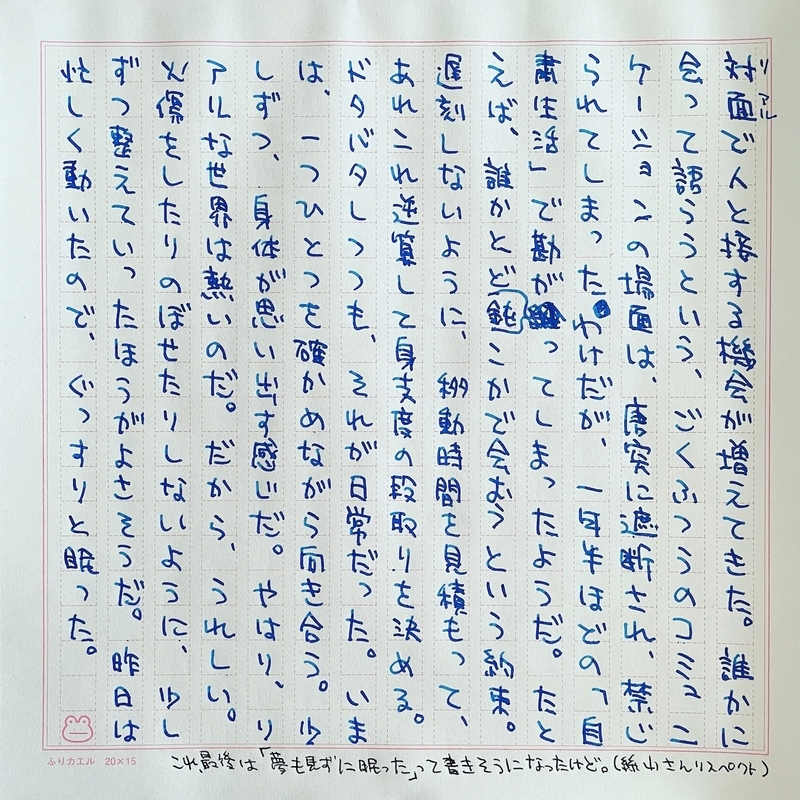 リアル
対面で人と接する機会が増えてきた。誰かに
会って語らうという、ごくふつうのコミュニ
ケーションの場面は、唐突に遮断され、禁じ
られてしまったわけだが、一年半ほどの「自
粛生活」で勘が鈍ってしまったようだ。たと
えば、誰かとどこかで会おうという約束。
遅刻しないように、移動時間を見積もって、
あれこれ逆算して身支度の段取りを決める。
ドタバタしつつも、それが日常だった。いま
は、一つひとつを確かめながら向き合う。少
しずつ、身体が思い出す感じだ。やはり、リ
アルな世界は熱いのだ。だから、うれしい。
火傷をしたりのぼせたりしないように、少し
ずつ整えていったほうがよさそうだ。昨日は
忙しく動いたので、ぐっすりと眠った。
ふりカエル 20×15
これ最後は「夢も見ずに眠った」って書きそうになったけど。(絲山さんリスペクト)